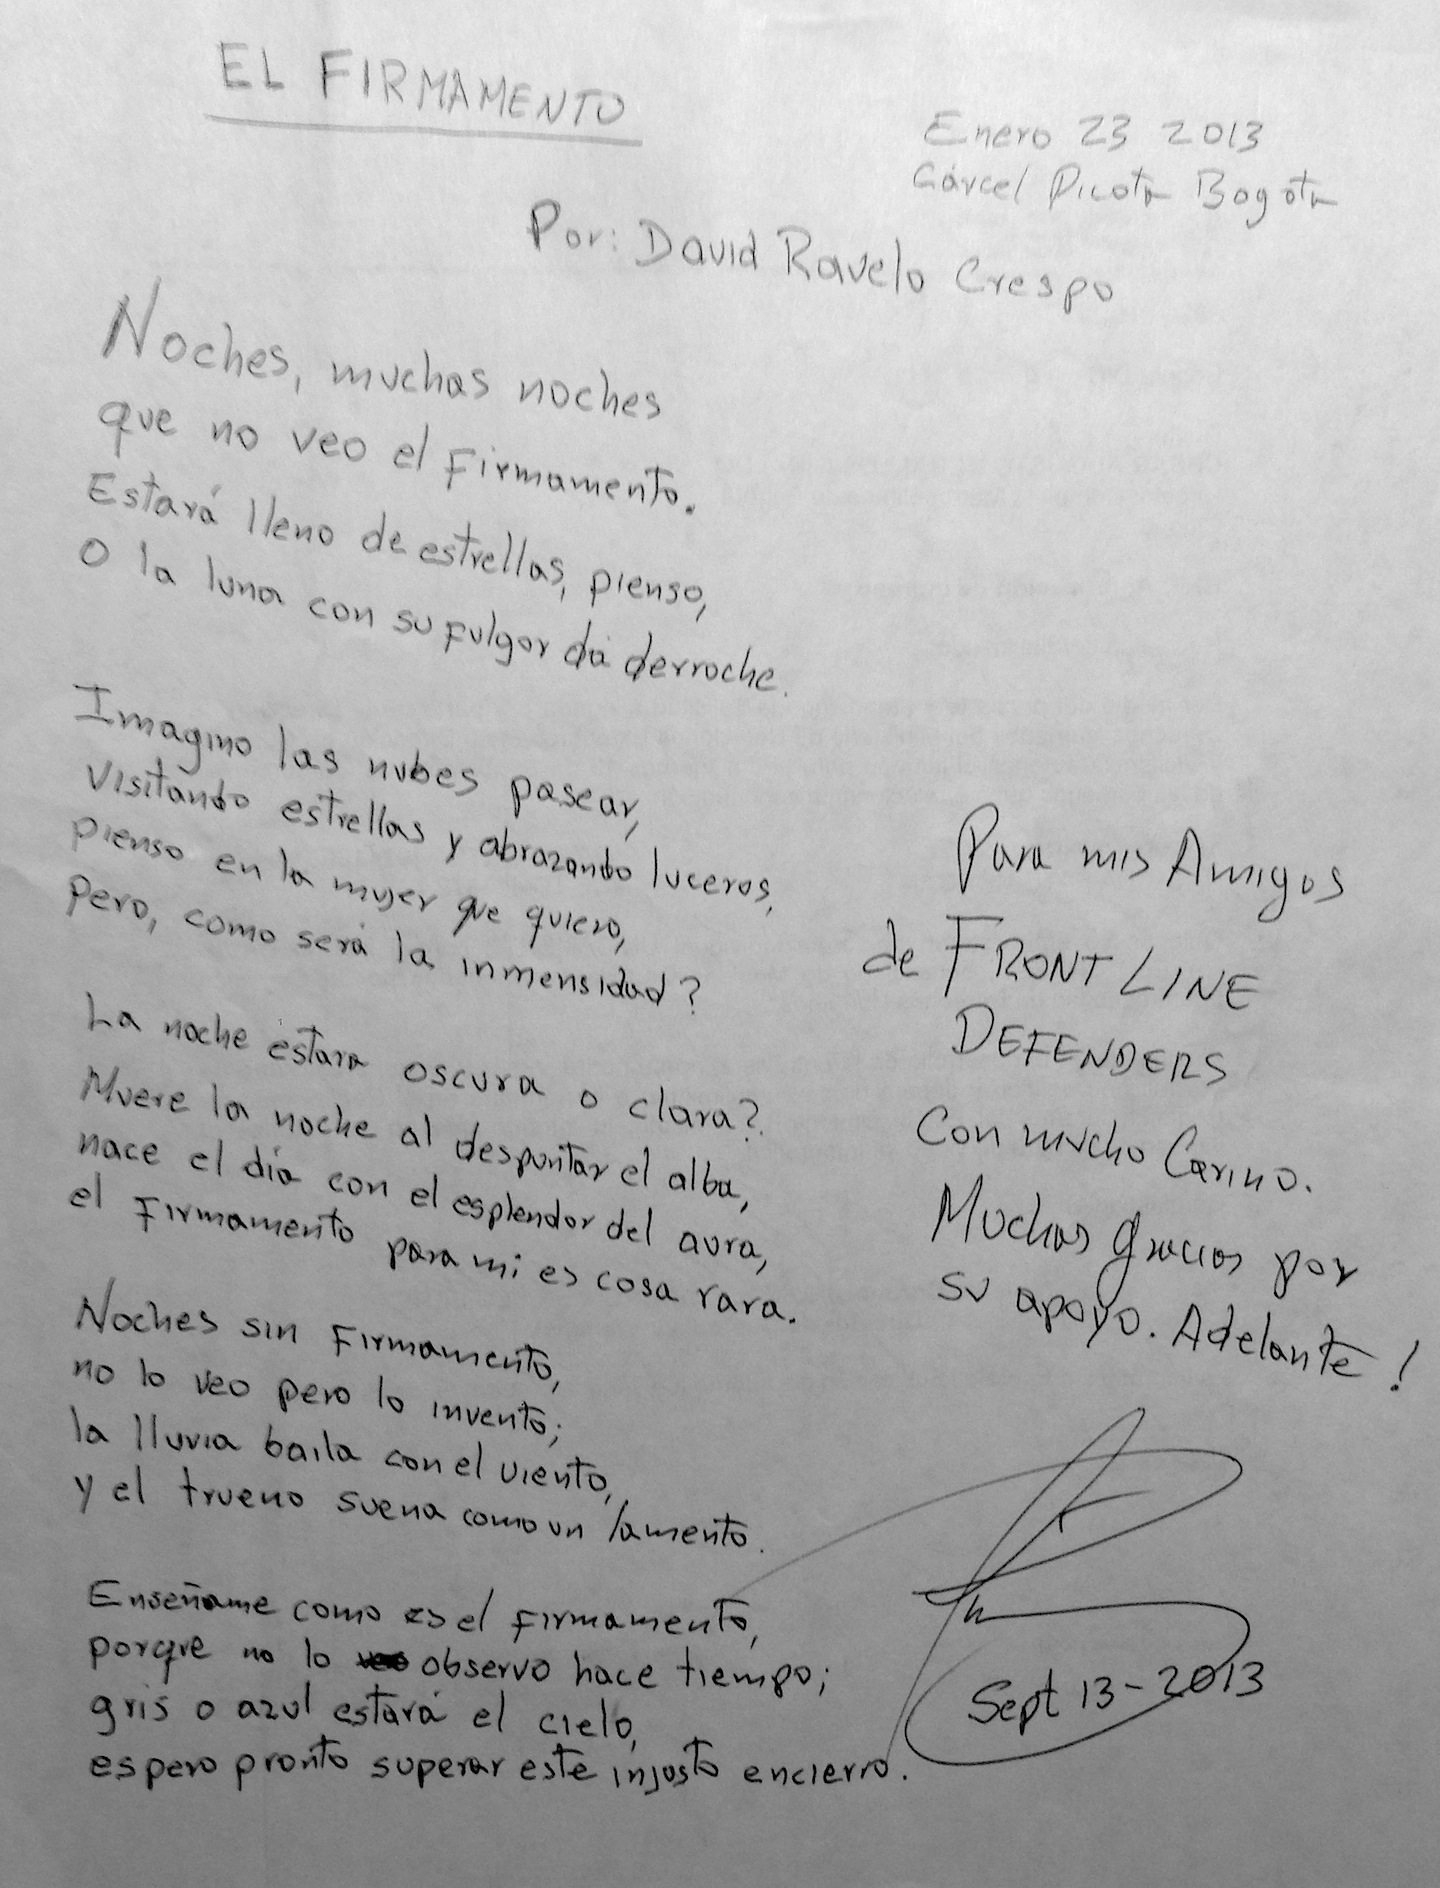 EL FIRMAMENTO
Enero 23 2013
Cárcel Picota Bogota
Por: David Ravelo Crespo
Noches, muchas noches
que no veo el firmamento.
Estará lleno de estrellas, pienso,
O la luna con su fulgor dá derroche.
Imagino las nubes pasear,
visitando estrellas y abrazando luceros,
pienso en la mujer que quiero,
Pero, como será la inmensidad?
La noche estara oscura o clara?
Muere la noche al despuntar el alba,
nace el día con el esplendor del aura,
el firmamento para mi es cosa rara.
Noches sin firmamento,
no lo veo pero lo invento;
la lluvia baila con el viento,
y el trueno suena como un lamento.
Enseñame como es el firmamento,
porque no lo observo hace tiempo;
gris o azul estará el cielo,
espero pronto superar este injusto encierro.
Para mis Amigos
de FRONT LINE
DEFENDERS
Con mucho Carino.
Muchas gracias por
su apoyo. Adelante!
Sept 13-2013